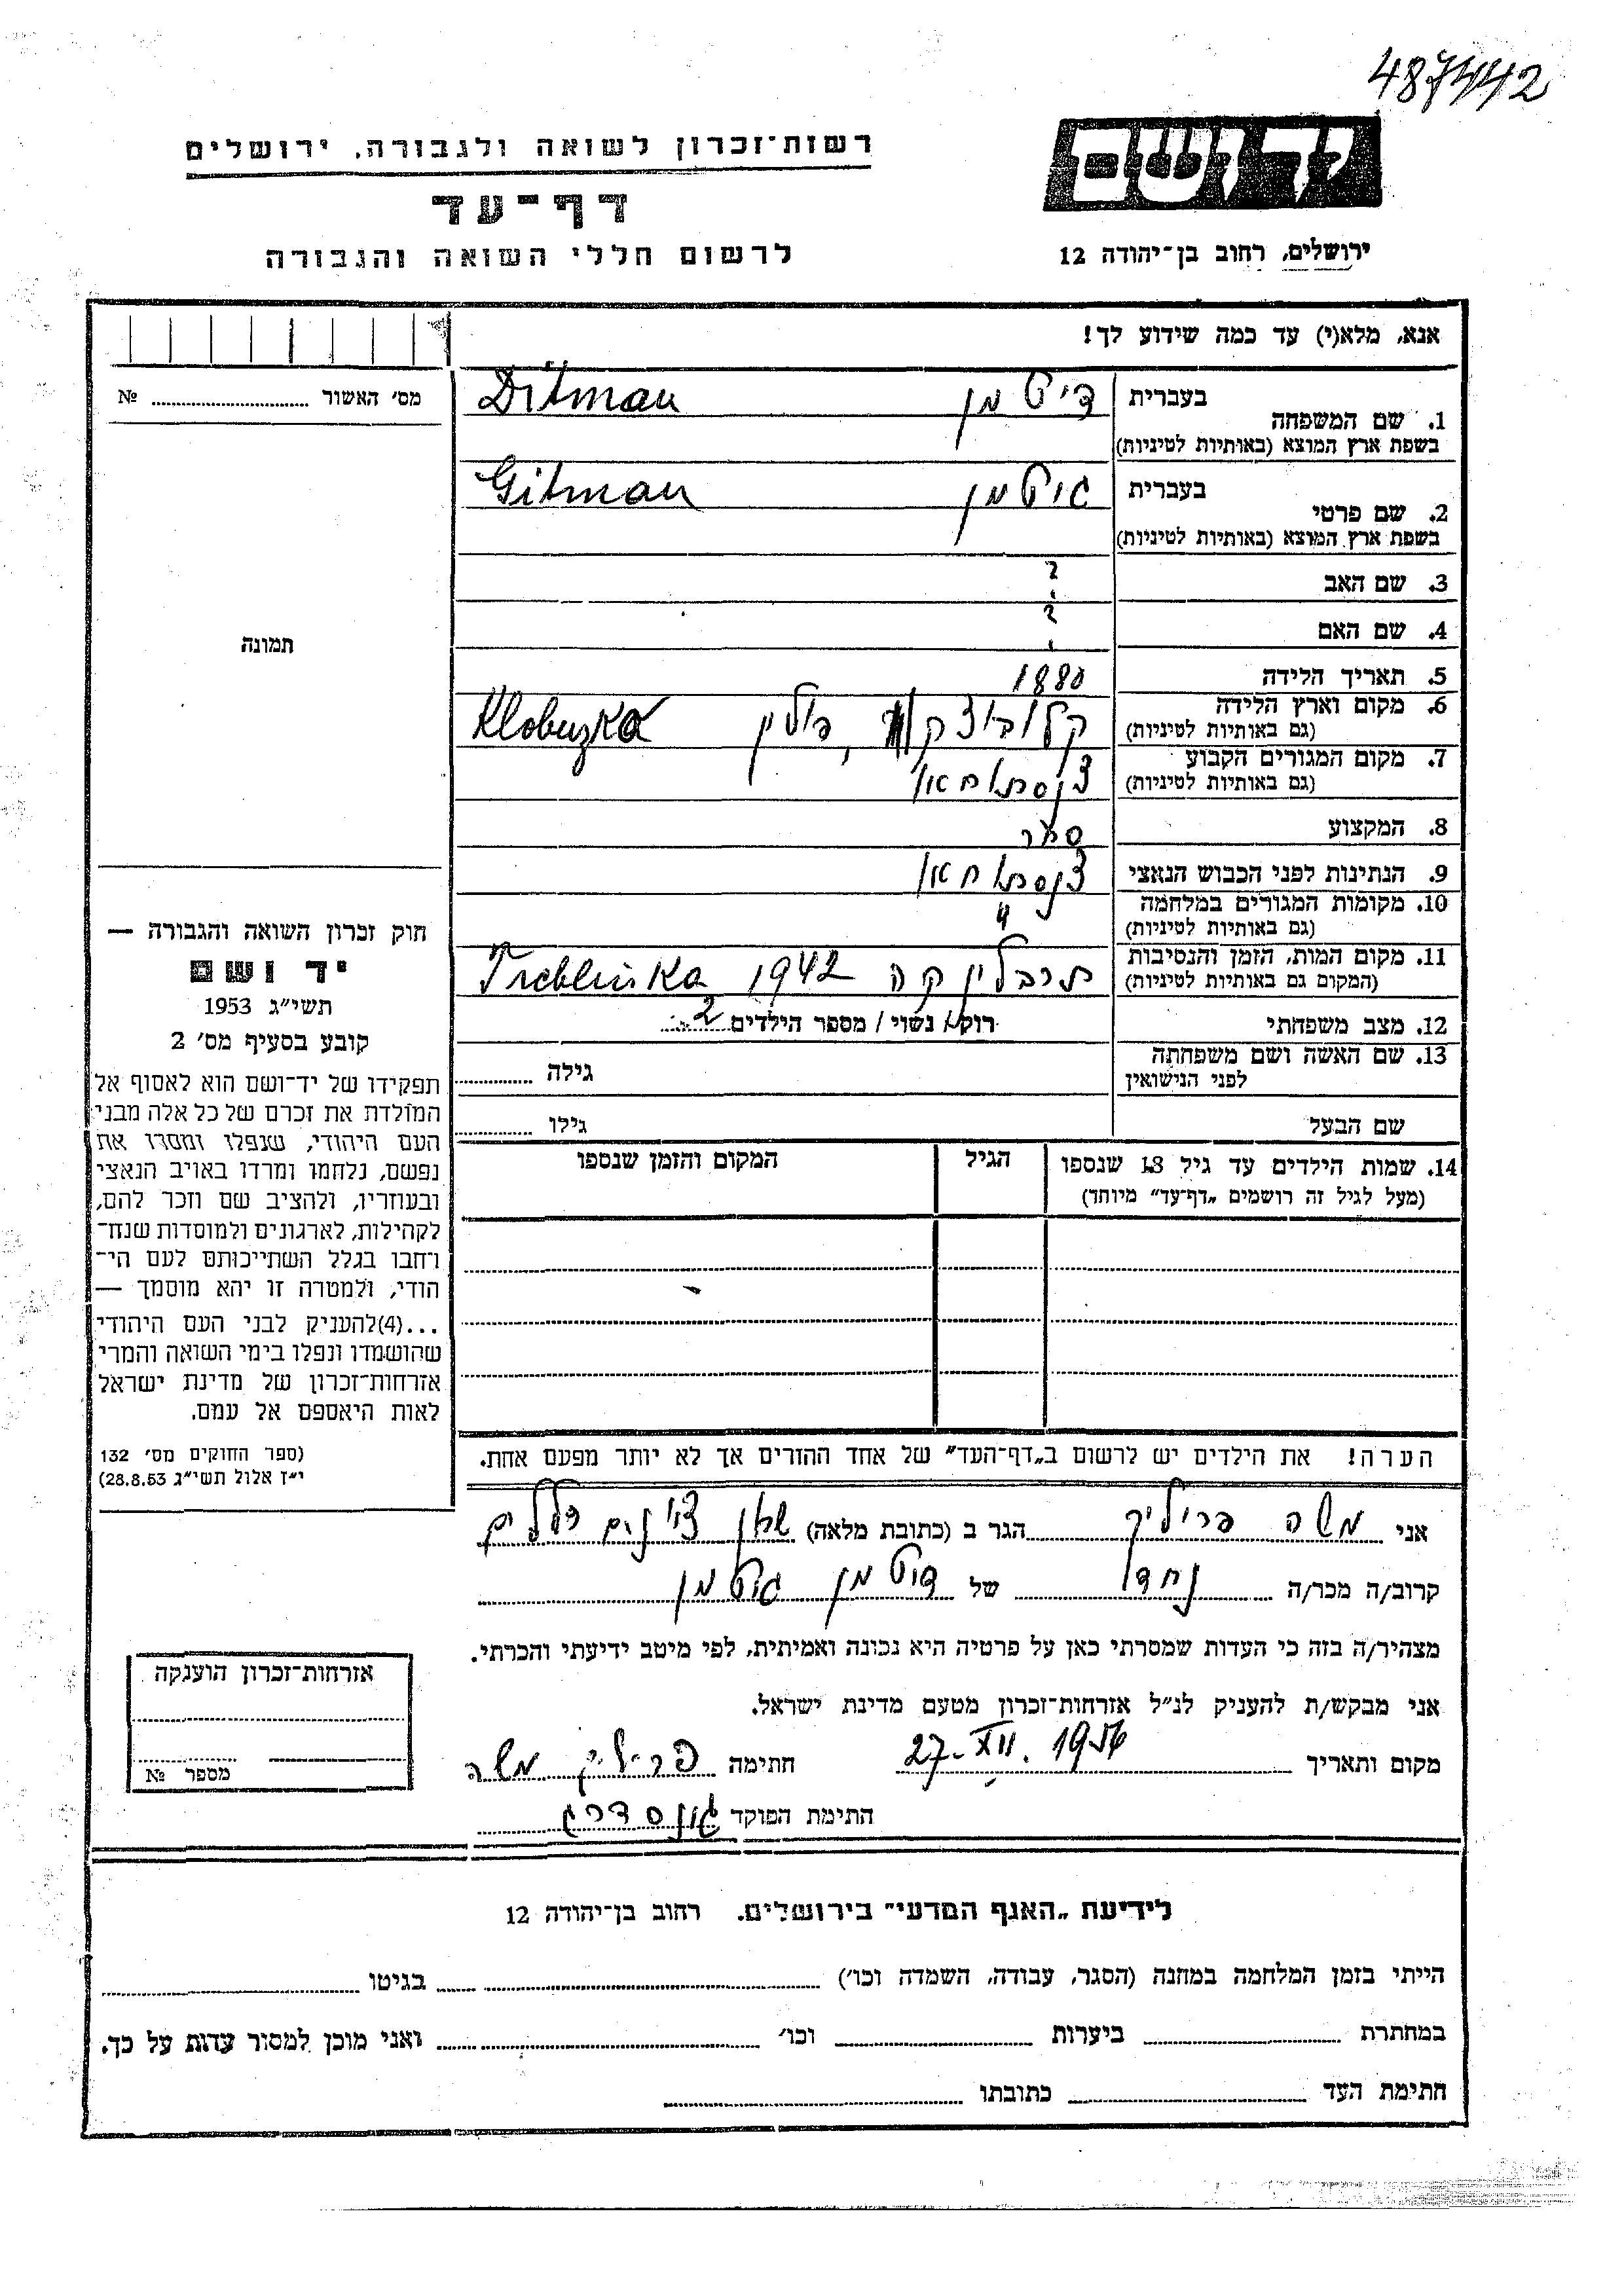 487442
יד ושם
רשות־זכרון לשואה ולגבורה, ירושלים
דף־עד
לרשום חללי השואה והגבורה
ירושלים, רחוב בן־יהודה 12
אנא, מלא(י) עד כמה שידוע לך!
מס' האשור № 
1. שם המשפחה בעברית דיטמן Ditman
בשפת ארץ המוצא (באותיות לטיניות)
2. שם פרטי בעברית גיטמן Gitman
בשפת ארץ המוצא (באותיות לטיניות)
3. שם האב ?
4. שם האם ?
תמונה
5. תאריך הלידה 1880
6. מקום וארץ הלידה קלובוצק, פולין Klobuzka
(גם באותיות לטיניות)
7. מקום המגורים הקבוע צ'נסטוחאו
(גם באותיות לטיניות)
8. המקצוע סוחר
9. הנתינות לפני הכבוש הנאצי צ'נסטוחאו
10. מקומות המגורים במלחמה "
(גם באותיות לטיניות)
11. מקום המות, הזמן והנסיבות טרבלינקה 1942 Treblinka
(המקום גם באותיות לטיניות)
12. מצב משפחתי רוק / נשוי / מספר הילדים 2
13. שם האשה ושם משפחתה גילה
לפני הנישואין
שם הבעל גילו
14. שמות הילדים עד גיל 18 שנספו הגיל המקום והזמן שנספו
(מעל לגיל זה רושמים „דף־עד" מיוחד)
חוק זכרון השואה והגבורה —
יד ושם
תשי"ג 1953
קובע בסעיף מס' 2
תפקידו של יד־ושם הוא לאסוף אל
המולדת את זכרם של כל אלה מבני
העם היהודי, שנפלו ומסרו את
נפשם, נלחמו ומרדו באויב הנאצי
ובעוזריו, ולהציב שם וזכר להם,
לקהילות, לארגונים ולמוסדות שנח־
רחבו בגלל השתייכותם לעם הי־
הודי, ולמטרה זו יהא מוסמך —
...(4)להעניק לבני העם היהודי
שהושמדו ונפלו בימי השואה והמרי
אזרחות־זכרון של מדינת ישראל
לאות היאספם אל עמם.
(ספר החוקים מס' 132
י"ז אלול תשי"ג 28.8.53)
הערה! את הילדים יש לרשום ב„דף־העד" של אחד ההורים אך לא יותר מפעם אחת.
אני משה פריליך הגר ב (כתובת מלאה)
קרוב/ה מכר/ה נכדו של דיטמן גיטמן
מצהיר/ה בזה כי העדות שמסרתי כאן על פרטיה היא נכונה ואמיתית, לפי מיטב ידיעתי והכרתי.
אני מבקש/ת להעניק לנ"ל אזרחות־זכרון מטעם מדינת ישראל.
מקום ותאריך 27. XII. 1956 חתימה פריליך משה
חתימת הפוקד
אזרחות־זכרון הוענקה
מספר №
לידיעת „האגף המדעי" בירושלים. רחוב בן־יהודה 12
הייתי בזמן המלחמה במחנה (הסגר, עבודה, השמדה וכו') בגיטו
במחתרת ביערות וכו' ואני מוכן למסור עדות על כך.
חתימת העד כתובתו